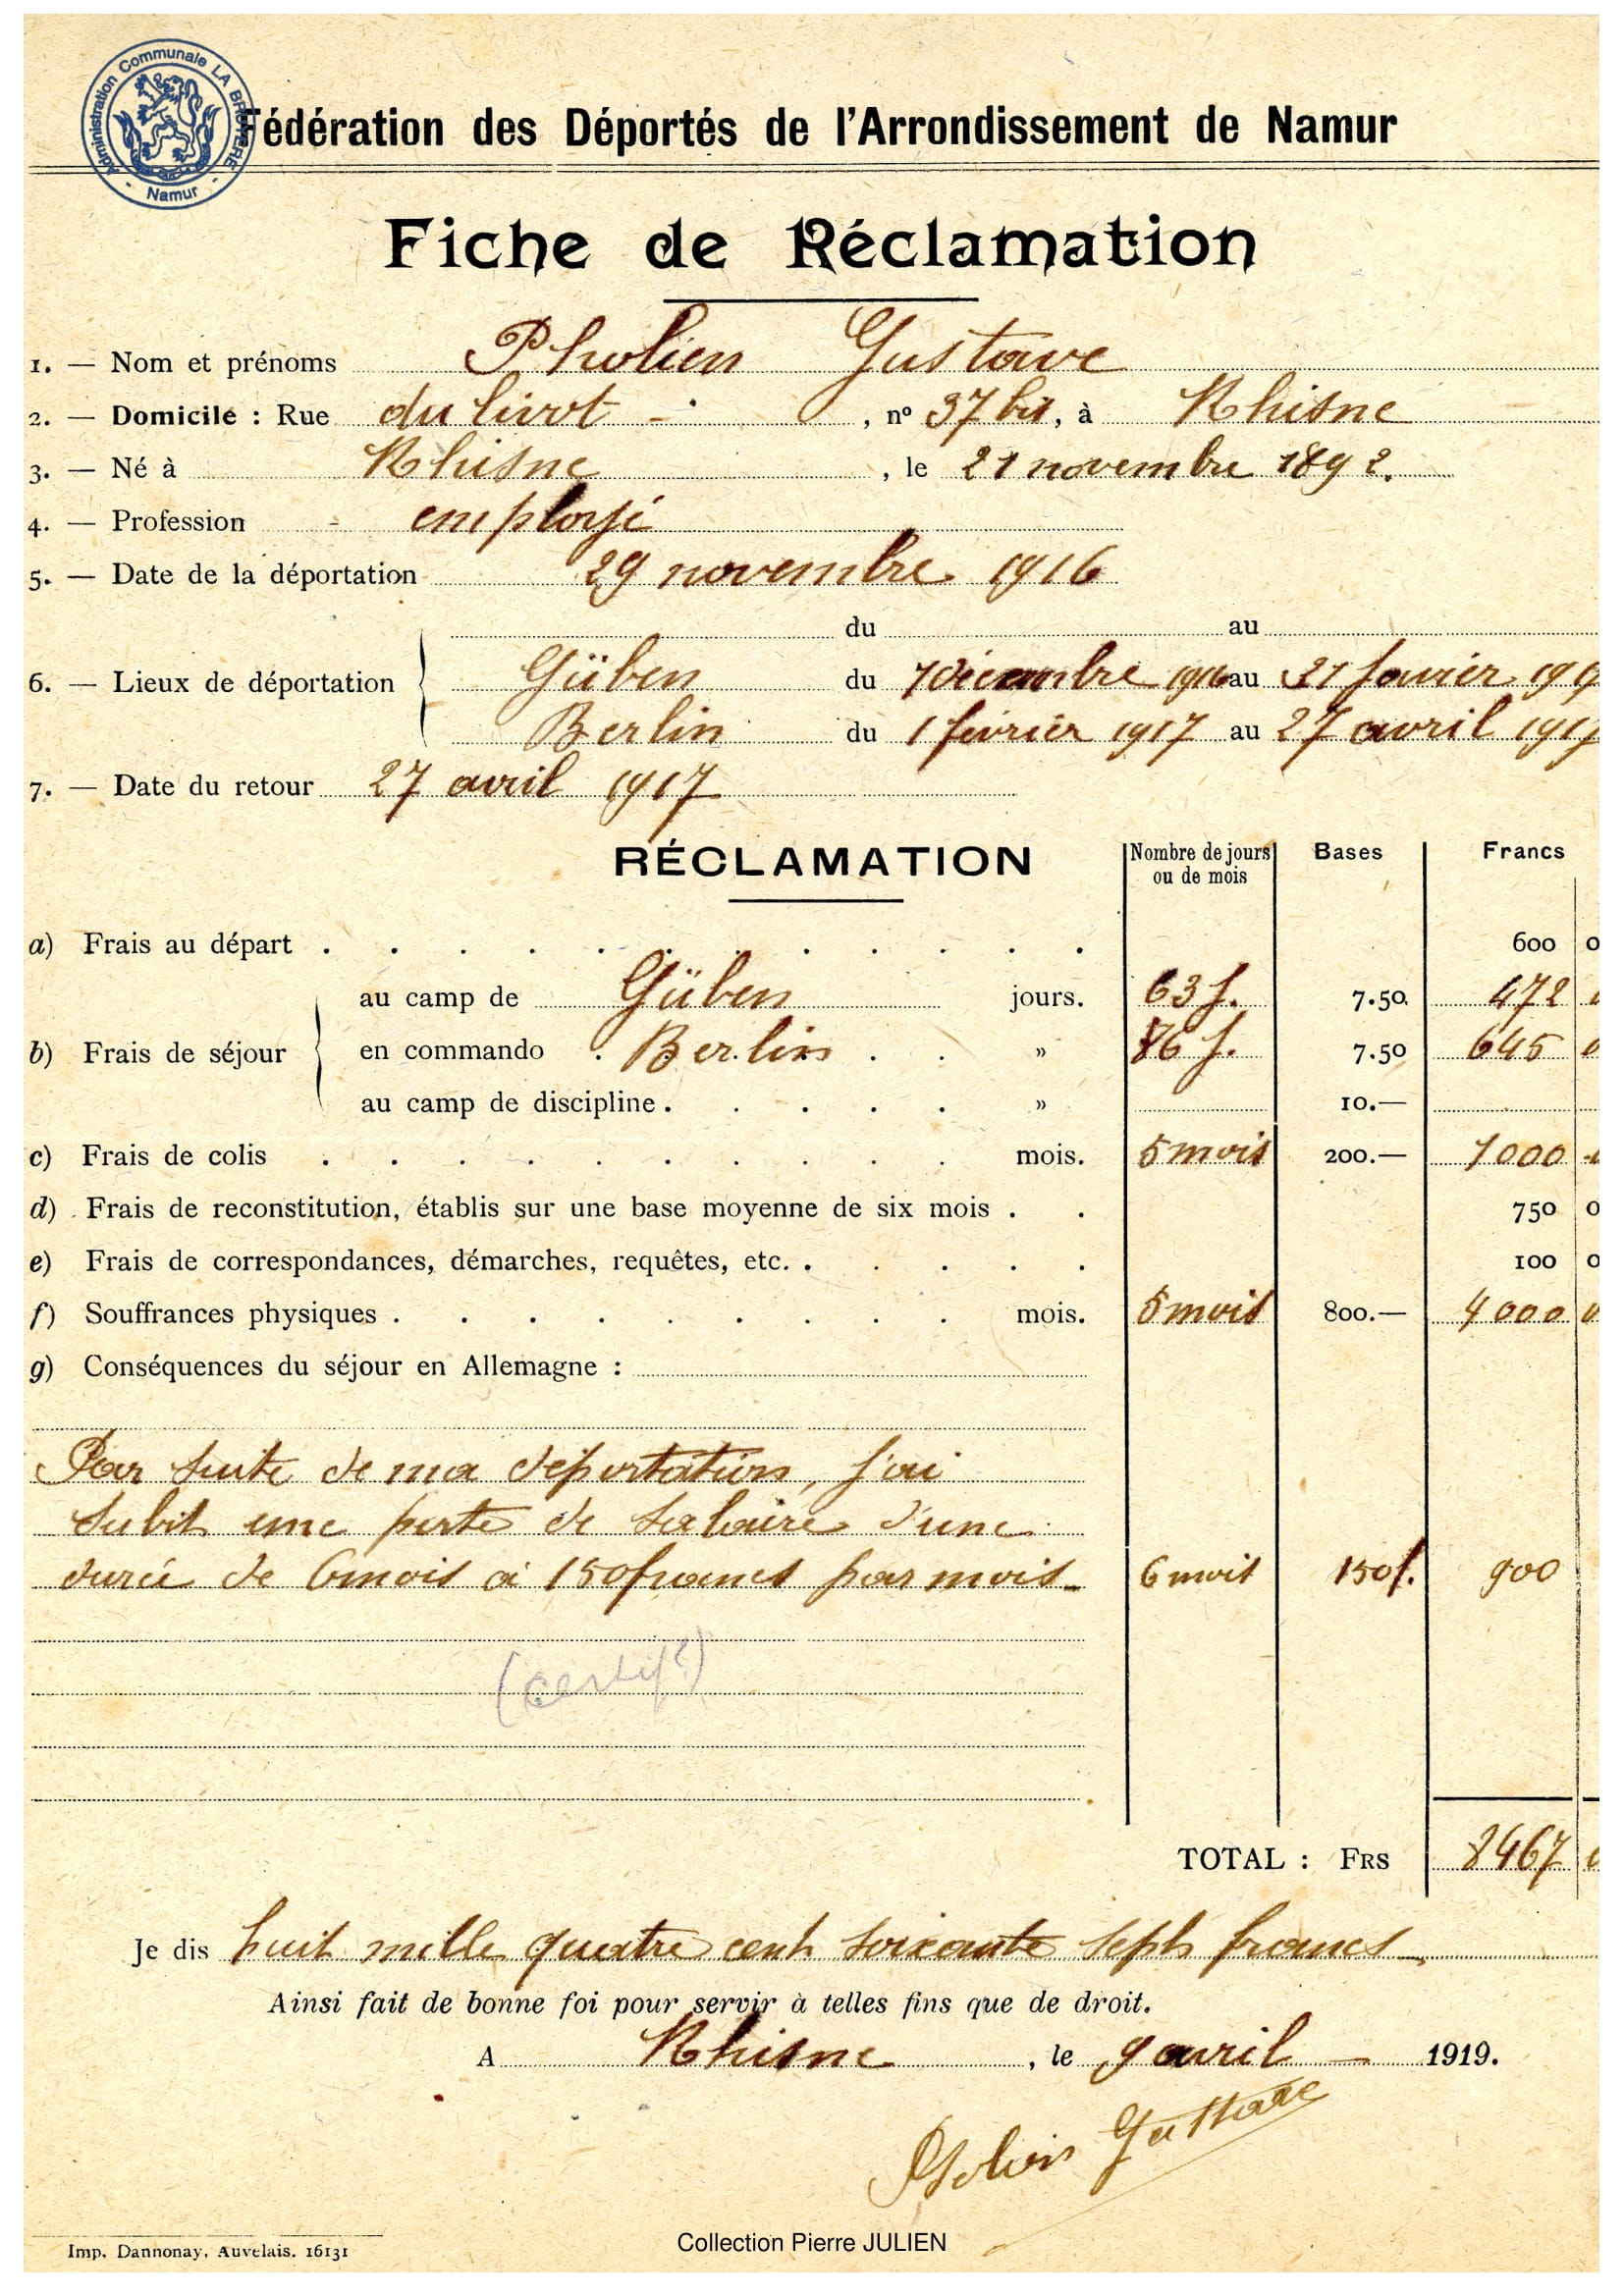 Administration Communale LA BRUYERE
- Namur -
Fédération des Déportés de l'Arrondissement de Namur
Fiche de Réclamation
1. — Nom et prénoms Pholien Gustave
2. — Domicile : Rue du livot -, n° 37 bis, à Rhisne
3. — Né à Rhisne, le 21 novembre 1892.
4. — Profession employé
5. — Date de la déportation 29 novembre 1916
du au
6. — Lieux de déportation Güben du 1 décembre 1916 au 31 janvier 191
Berlin du 1 février 1917 au 27 avril 1917
7. — Date du retour 27 avril 1917
RÉCLAMATION Nombre de jours ou de mois Bases Francs
a) Frais au départ 600 0
b) Frais de séjour au camp de Güben jours. 63 j. 7.50 472
en commando Berlin » 86 j. 7.50 645
au camp de discipline » 10.—
c) Frais de colis mois. 5 mois 200.— 1000
d) Frais de reconstitution, établis sur une base moyenne de six mois 750 0
e) Frais de correspondances, démarches, requêtes, etc. 100 0
f) Souffrances physiques mois. 5 mois 800.— 4000
g) Conséquences du séjour en Allemagne :
Par suite de ma déportation, j'ai
subit une perte de salaire d'une
durée de 6 mois à 150 francs par mois 6 mois 150 f. 900
(certif)
TOTAL : FRS 8467
Je dis huit mille quatre cent soixante sept francs
Ainsi fait de bonne foi pour servir à telles fins que de droit.
A Rhisne, le 9 avril 1919.
Pholien Gustave
Imp. Dannonay, Auvelais. 16131
Collection Pierre JULIEN